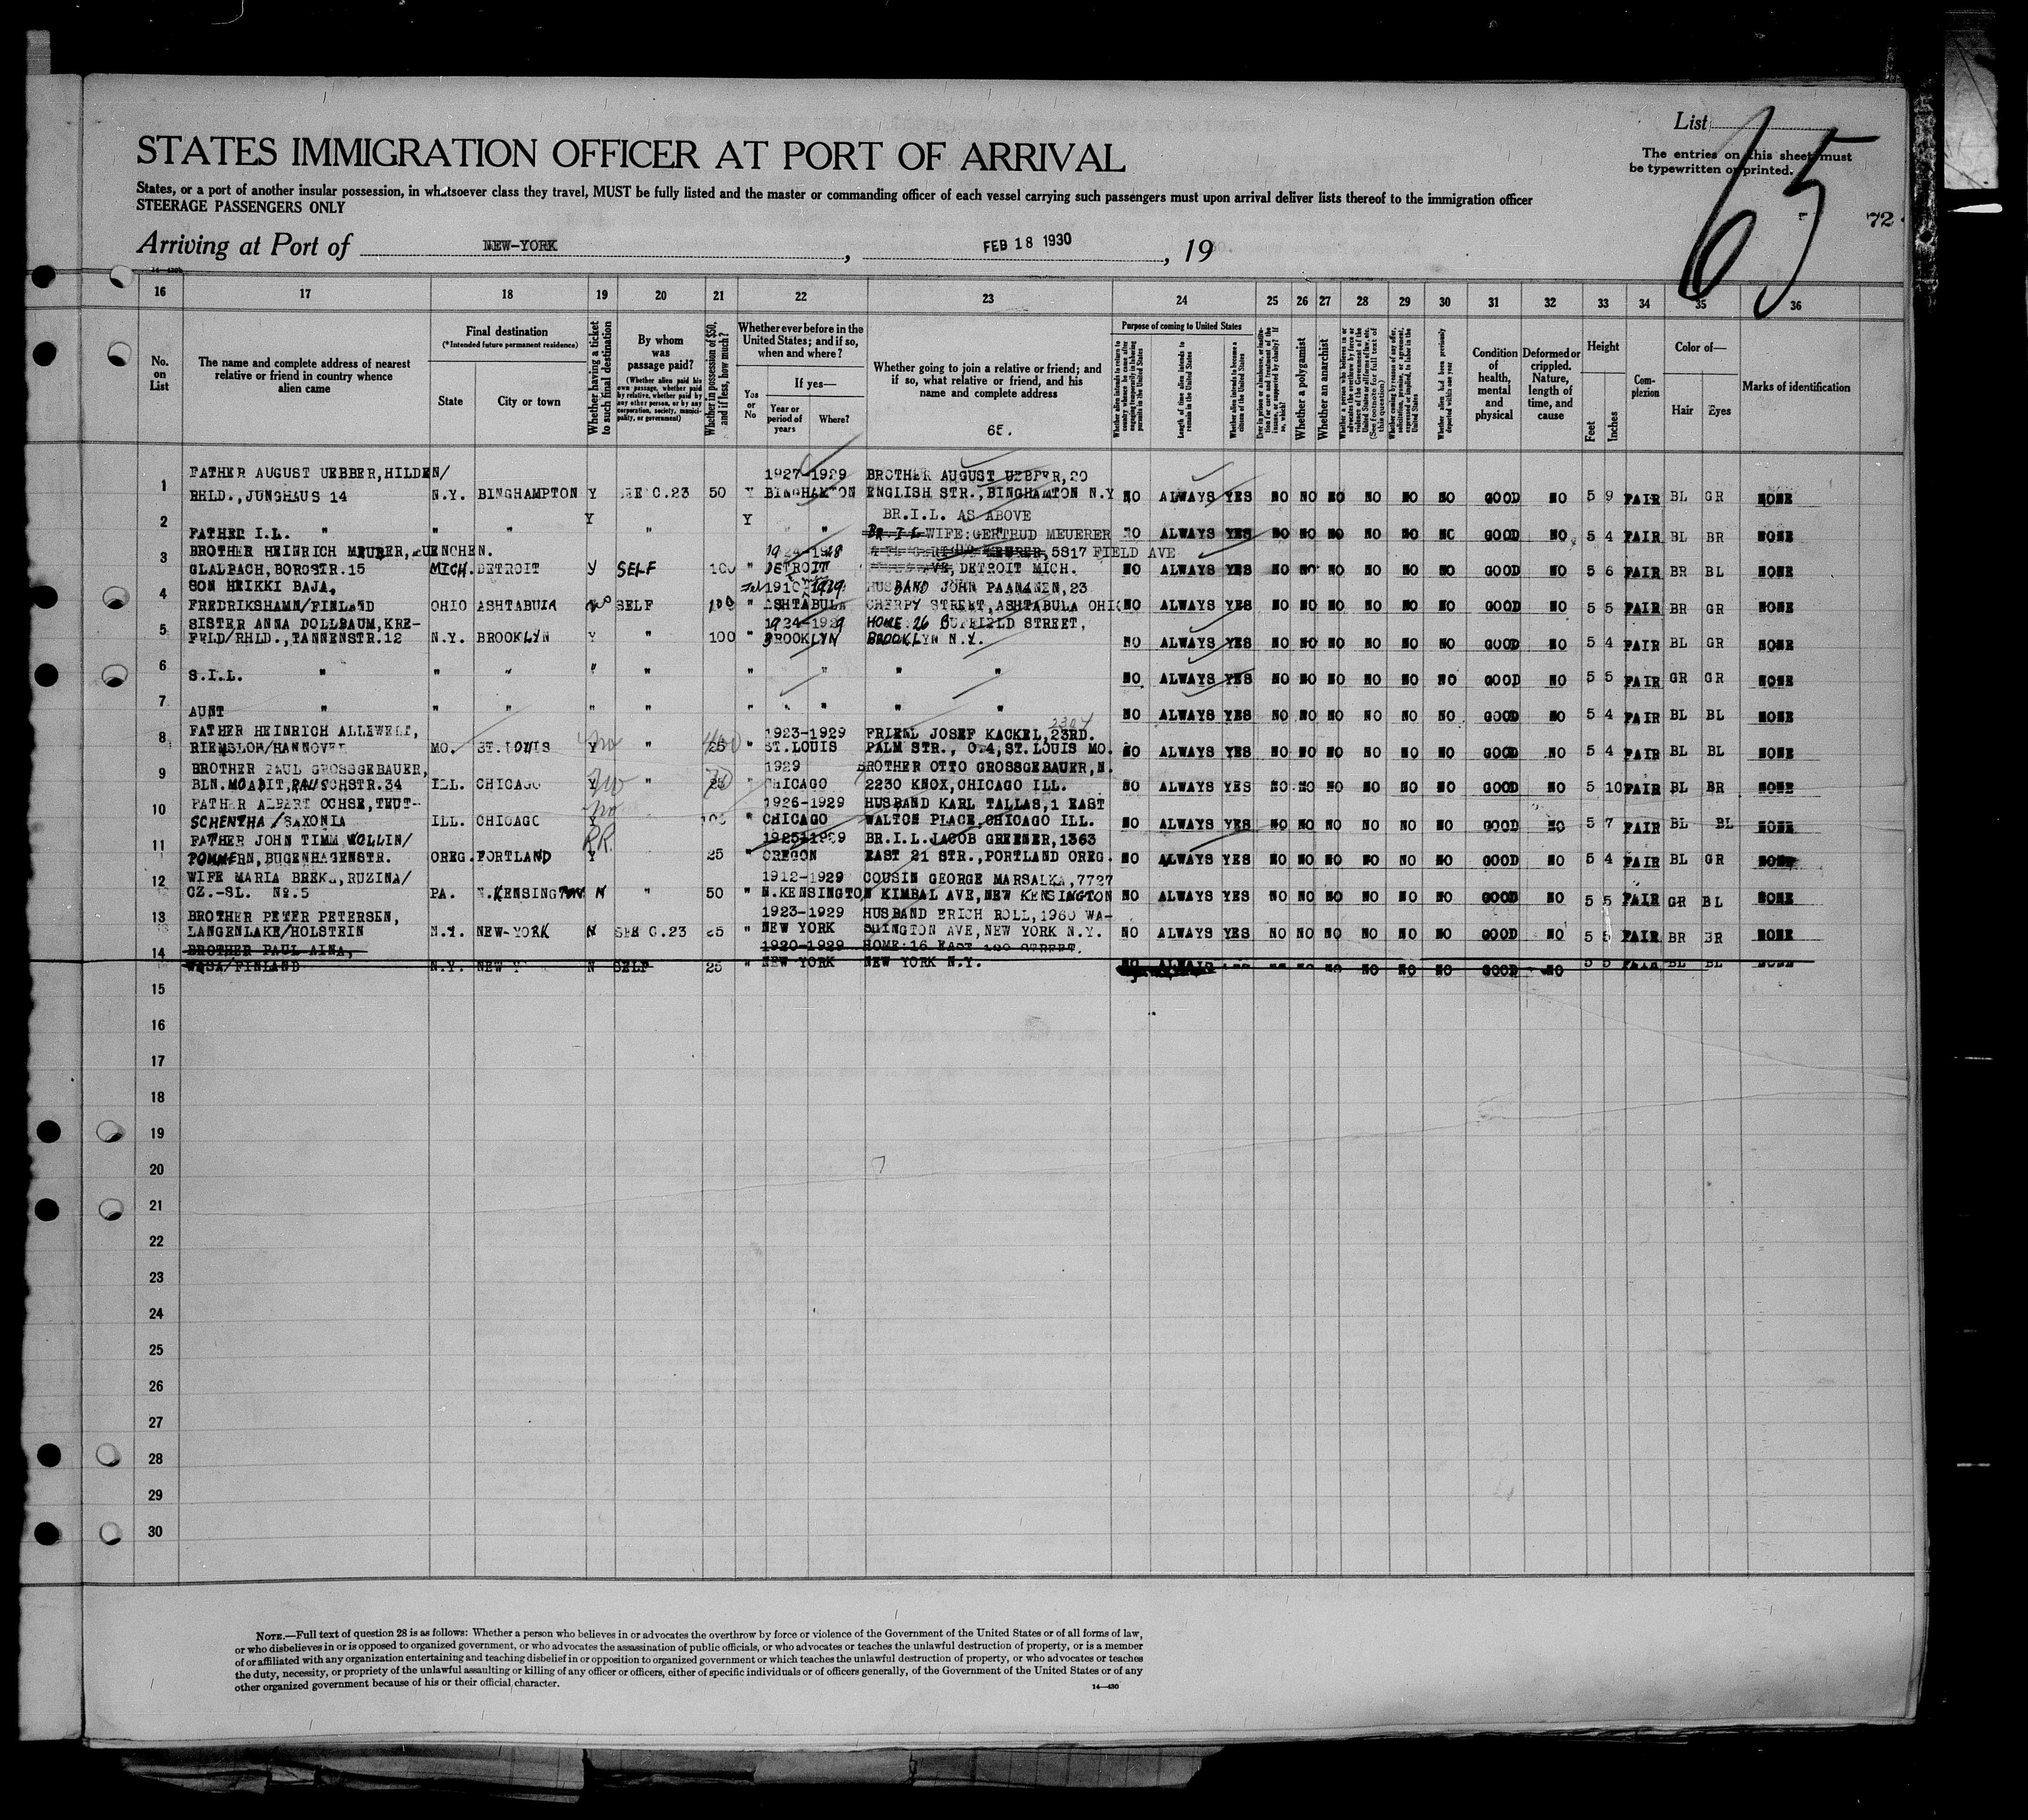 List
65
The entries on this sheet must
be typewritten or printed.
72
STATES IMMIGRATION OFFICER AT PORT OF ARRIVAL
States, or a port of another insular possession, in whatsoever class they travel, MUST be fully listed and the master or commanding officer of each vessel carrying such passengers must upon arrival deliver lists thereof to the immigration officer
STEERAGE PASSENGERS ONLY
Arriving at Port of NEW-YORK, FEB 18 1930, 19
16 17 18 19 20 21 22 23 24 25 26 27 28 29 30 31 32 33 34 35 36
No. on List
The name and complete address of nearest relative or friend in country whence alien came
Final destination
(*Intended future permanent residence)
State
City or town
Whether having a ticket to such final destination
By whom was passage paid?
(Whether alien paid his own passage, whether paid by relative, whether paid by any other person, or by any corporation, society, municipality, or government)
Whether in possession of $50, and if less, how much?
Whether ever before in the United States; and if so, when and where?
Yes or No
If yes—
Year or period of years
Where?
Whether going to join a relative or friend; and if so, what relative or friend, and his name and complete address
65.
Purpose of coming to United States
Length of time alien intends to remain in the United States
Whether alien intends to become a citizen of the United States
Whether a polygamist
Whether an anarchist
Condition of health, mental and physical
Deformed or crippled. Nature, length of time, and cause
Height
Feet
Inches
Complexion
Color of—
Hair
Eyes
Marks of identification
1 FATHER AUGUST UEBBER, HILDEN/ 1927-1929 BROTHER AUGUST UEBBER, 20
RHLD., JUNGHAUS 14 N.Y. BINGHAMPTON Y SEE C.23 50 Y BINGHAMTON ENGLISH STR., BINGHAMTON N.Y NO ALWAYS YES NO NO NO NO NO NO GOOD NO 5 9 FAIR BL GR NONE
2 Y Y BR.I.L. AS ABOVE
FATHER I.L. " " " " " " WIFE: GERTRUD MEUERER NO ALWAYS YES NO NO NO NO NO NO GOOD NO 5 4 FAIR BL BR NONE
3 BROTHER HEINRICH MEURER, MUENCHEN. 1924-1928 5817 FIELD AVE
GLALBACH, BOROSTR.15 MICH. DETROIT Y SELF 100 " DETROIT DETROIT MICH. NO ALWAYS YES NO NO NO NO NO NO GOOD NO 5 6 FAIR BR BL NONE
4 SON HEIKKI BAJA, 1910-1929 HUSBAND JOHN PAANANEN, 23
FREDRIKSHAMN/FINLAND OHIO ASHTABULA NO SELF 100 " ASHTABULA CHERRY STREET, ASHTABULA OHIO NO ALWAYS YES NO NO NO NO NO NO GOOD NO 5 5 FAIR BR GR NONE
5 SISTER ANNA DOLLBAUM, KRE- 1924-1929 HOME: 26 STREET,
FELD/RHLD., TANNENSTR.12 N.Y. BROOKLYN Y " 100 " BROOKLYN BROOKLYN N.Y. NO ALWAYS YES NO NO NO NO NO NO GOOD NO 5 4 FAIR BL GR NONE
6 S.I.L. " " " " " " " " " NO ALWAYS YES NO NO NO NO NO NO GOOD NO 5 5 FAIR GR GR NONE
7 AUNT " " " " " " " " " " NO ALWAYS YES NO NO NO NO NO NO GOOD NO 5 4 FAIR BL BL NONE
8 FATHER HEINRICH ALLEWELT, 1923-1929 FRIEND JOSEF KACKEL, 23RD. 2304
RIEMSLOH/HANNOVER MO. ST.LOUIS Y " 25 " ST.LOUIS PALM STR., ST.LOUIS MO. NO ALWAYS YES NO NO NO NO NO NO GOOD NO 5 4 FAIR BL BL NONE
9 BROTHER PAUL GROSSGEBAUER, 1929 BROTHER OTTO GROSSGEBAUER, N.
BLN.MOABIT, RAUSCHSTR.34 ILL. CHICAGO Y " 25 " CHICAGO 2230 KNOX, CHICAGO ILL. NO ALWAYS YES NO NO NO NO NO NO GOOD NO 5 10 FAIR BL BR NONE
10 FATHER ALBERT OCHSE, TEUT- 1926-1929 HUSBAND KARL TALLAS, 1 EAST
SCHENTHA/SAXONIA ILL. CHICAGO Y 100 " CHICAGO WALTON PLACE, CHICAGO ILL. NO ALWAYS YES NO NO NO NO NO NO GOOD NO 5 7 FAIR BL BL NONE
11 FATHER JOHN TIMM WOLLIN/ RR. 1925-1929 BR.I.L. JACOB GREENER, 1363
POMMERN, BUGENHAGENSTR. OREG. PORTLAND Y 25 " OREGON EAST 21 STR., PORTLAND OREG. NO ALWAYS YES NO NO NO NO NO NO GOOD NO 5 4 FAIR BL GR NONE
12 WIFE MARIA BREKA, RUZINA/ 1912-1929 COUSIN GEORGE MARSALKA, 7727
CZ.-SL. No.5 PA. N.KENSINGTON N " 50 " N.KENSINGTON KIMBAL AVE, NEW KENSINGTON NO ALWAYS YES NO NO NO NO NO NO GOOD NO 5 5 FAIR GR BL NONE
13 BROTHER PETER PETERSEN, 1923-1929 HUSBAND ERICH ROLL, 1960 WA-
LANGENLAKE/HOLSTEIN N.Y. NEW-YORK N SEE C.23 25 " NEW YORK SHINGTON AVE, NEW YORK N.Y. NO ALWAYS YES NO NO NO NO NO NO GOOD NO 5 5 FAIR BR BR NONE
14 BROTHER PAUL AINA, 1920-1929 HOME: 16 EAST STREET,
WASA/FINLAND N.Y. NEW N SELF 25 " NEW YORK NEW YORK N.Y. NO NO NO NO GOOD NO 5 5 FAIR BL BL NONE
15
16
17
18
19
20
21
22
23
24
25
26
27
28
29
30
NOTE.—Full text of question 28 is as follows: Whether a person who believes in or advocates the overthrow by force or violence of the Government of the United States or of all forms of law,
or who disbelieves in or is opposed to organized government, or who advocates the assassination of public officials, or who advocates or teaches the unlawful destruction of property, or is a member
of or affiliated with any organization entertaining and teaching disbelief in or opposition to organized government or which teaches the unlawful destruction of property, or who advocates or teaches
the duty, necessity, or propriety of the unlawful assaulting or killing of any officer or officers, either of specific individuals or of officers generally, of the Government of the United States or of any
other organized government because of his or their official character.
14—430